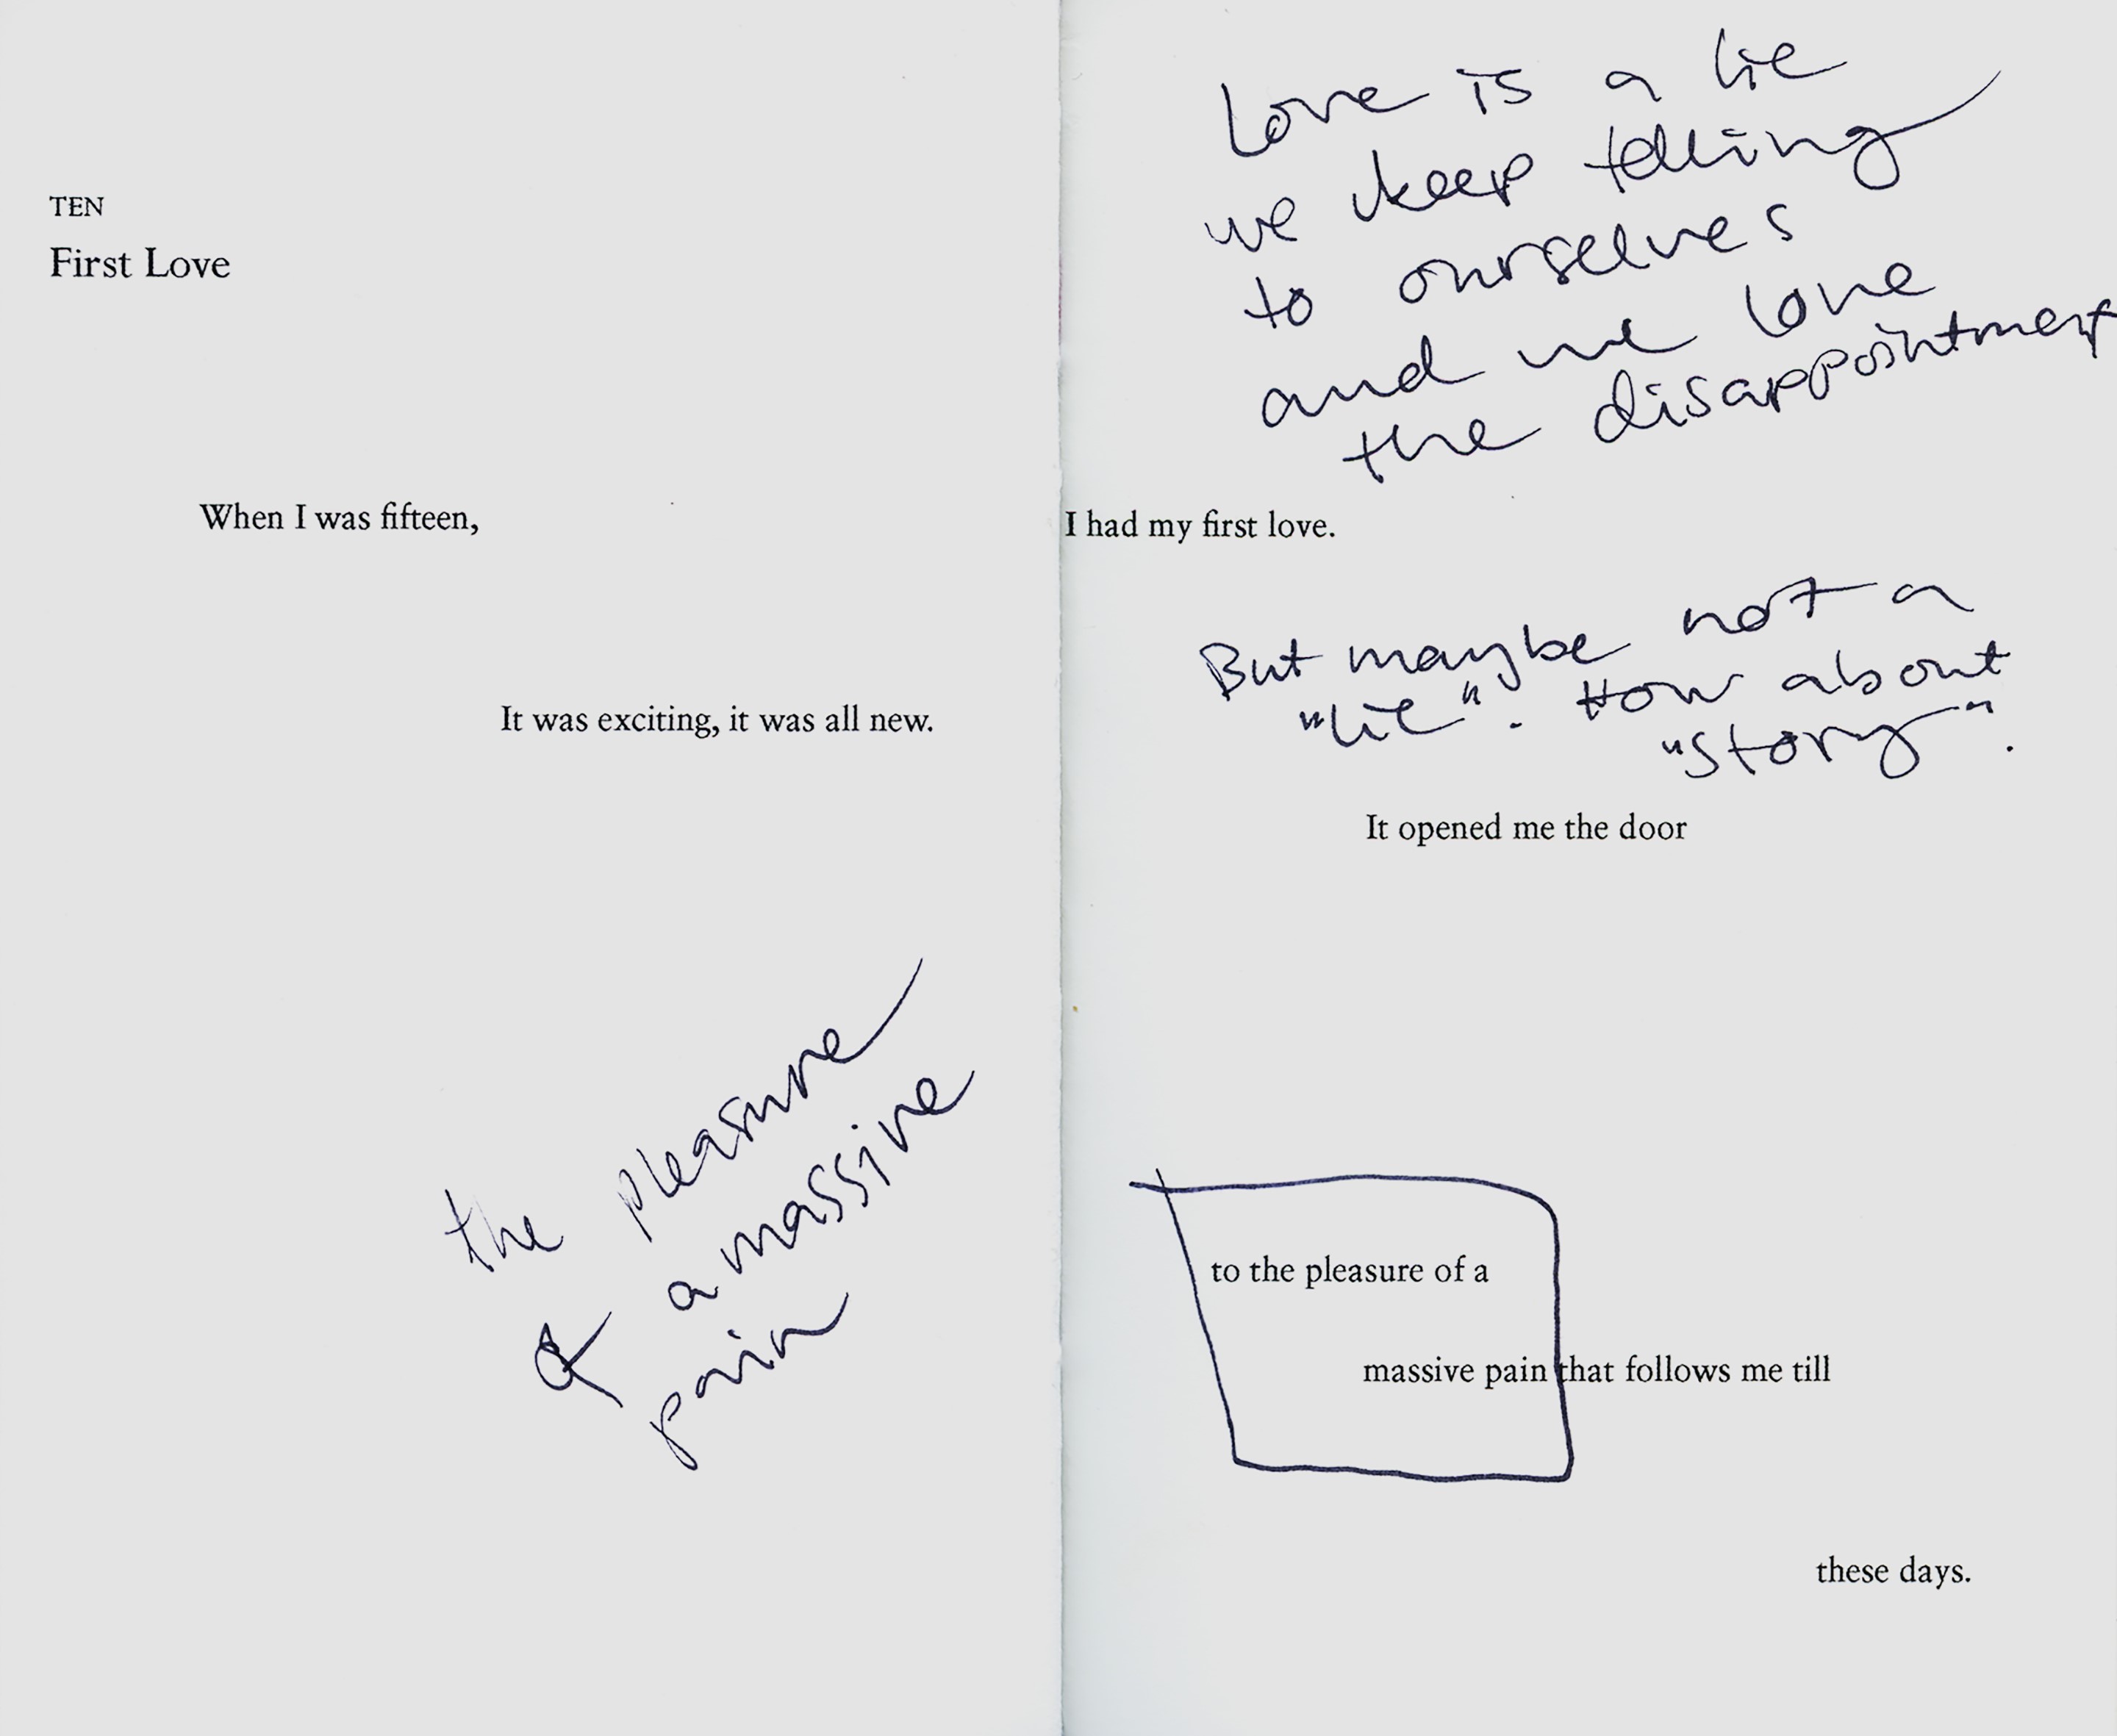 TEN
First Love
When I was fifteen,
It was exciting, it was all new.
the pleasure
a massive
pain
Love is a lie
we keep telling
to ourselves
and we love
the disappointment
I had my first love.
But maybe not a
"lie". How about
"story".
It opened me the door
to the pleasure of a
massive pain that follows me till
these days.